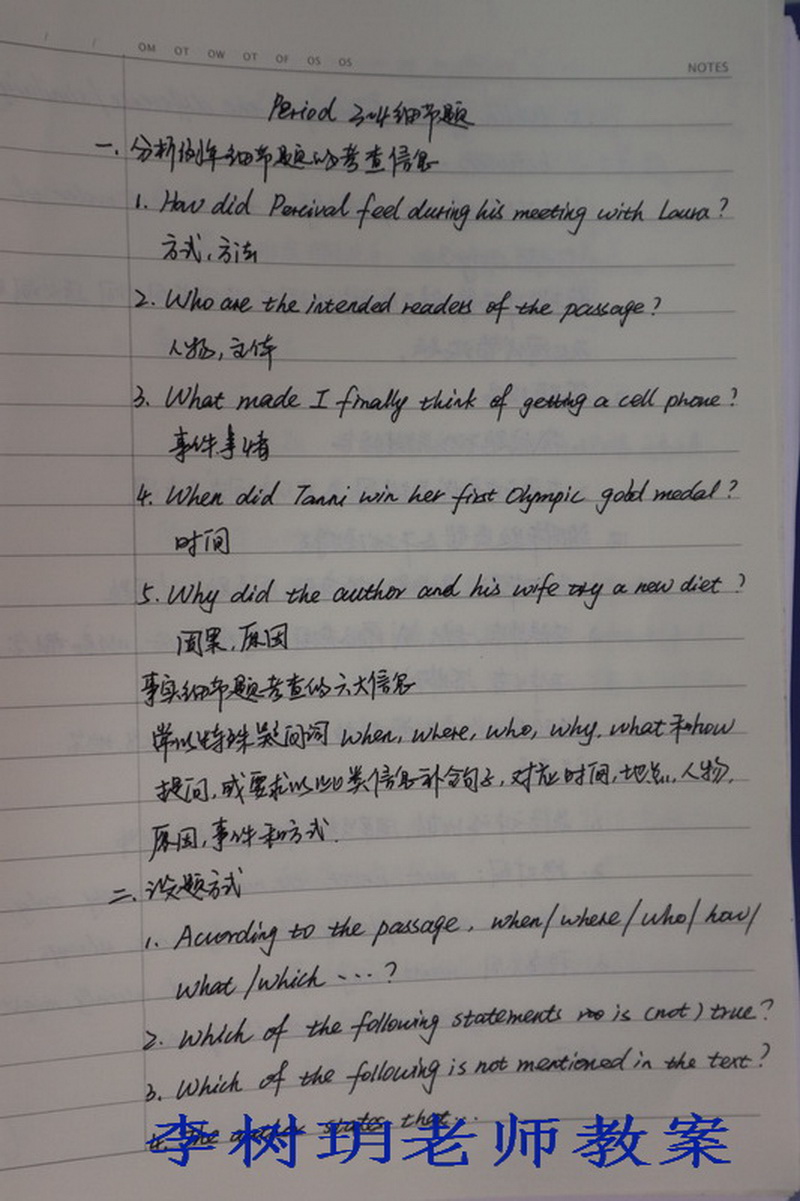 OM OT OW OT OF OS OS
NOTES
Period 3~4 细节题
一. 分析例年细节题的考查信息
1. How did Percival feel during his meeting with Laura?
方式, 方法
2. Who are the intended readers of the passage?
人物, 主体
3. What made I finally think of getting a cell phone?
事件.事情
4. When did Tanni win her first Olympic gold medal?
时间
5. Why did the author and his wife try a new diet?
因果, 原因
事实细节题考查的六大信息
常以特殊疑问词 when, where, who, why, what 和 how
提问, 或要求以此类信息补全句子, 对应时间, 地点, 人物,
原因, 事件和方式.
二. 设题方式
1. According to the passage, when/where/who/how/
what/which ...?
2. Which of the following statements is (not) true?
3. Which of the following is not mentioned in the text?
states that...
李树玥老师教案